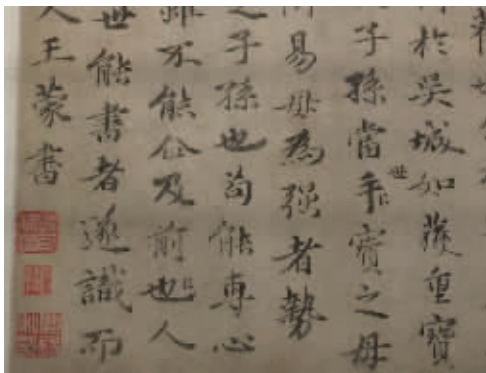 於吳城如獲重寶
子孫當世手寶之毋
易毋為強者勢
之子孫也苟能專心
雖不能企及前也人
世能書者遂識而
人王蒙書